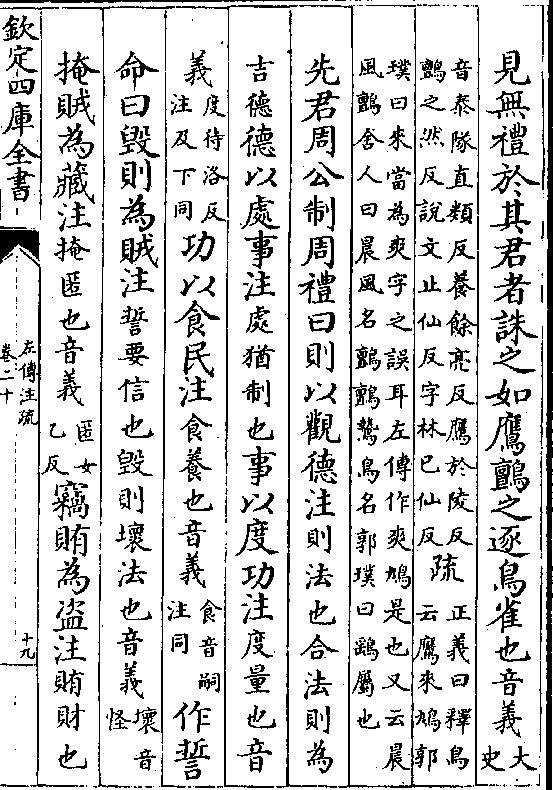 見無禮於其君者誅之如鷹鸇之逐鳥雀也音義大史
音泰隊直類反養餘亮反鷹於陵反
鸇之然反說文止仙反字林已仙反疏正義曰釋鳥
云鷹來鳩郭
璞曰來當為爽字之誤耳左傳作爽鳩是也又云晨
風鸇舍人曰晨風名鸇鸇鷙鳥名郭璞曰鷂屬也
先君周公制周禮曰則以觀德注則法也合法則為
吉德德以處事注處猶制也事以度功注度量也音
義度待洛反
注及下同功以食民注食養也音義食音嗣
注同作誓
命曰毀則為賊注誓要信也毀則壞法也音義壞音
怪
掩賊為藏注掩匿也音義匿女
乙反竊賄為盜注賄財也
欽定四庫全書
左傳注疏
卷二十
十九